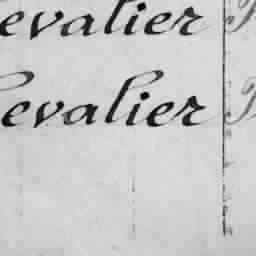 evalier
hevalier